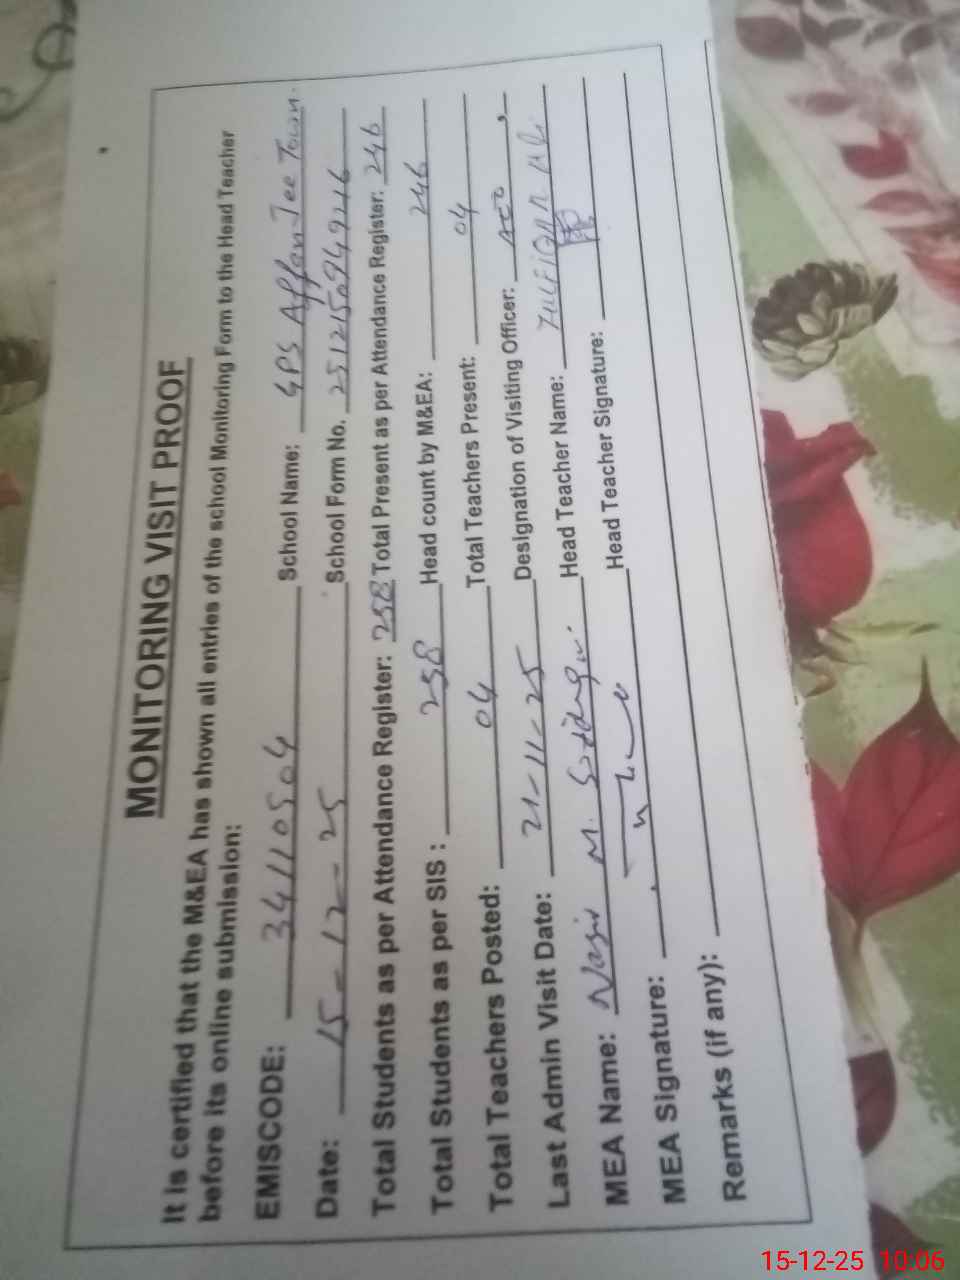 MONITORING VISIT PROOF
It is certified that the M&EA has shown all entries of the school Monitoring Form to the Head Teacher
before its online submission:
EMISCODE: 34110504 School Name: GPS Affan Jee Town.
Date: 15-12-25 School Form No. 2512150949216
Total Students as per Attendance Register: 258 Total Present as per Attendance Register: 246
Total Students as per SIS : 258 Head count by M&EA: 246
Total Teachers Posted: 04 Total Teachers Present: 04
Last Admin Visit Date: 21-11-25 Designation of Visiting Officer: AEO
MEA Name: Nasir M. Head Teacher Name: Ali
MEA Signature: Head Teacher Signature:
Remarks (if any):
15-12-25 10:06